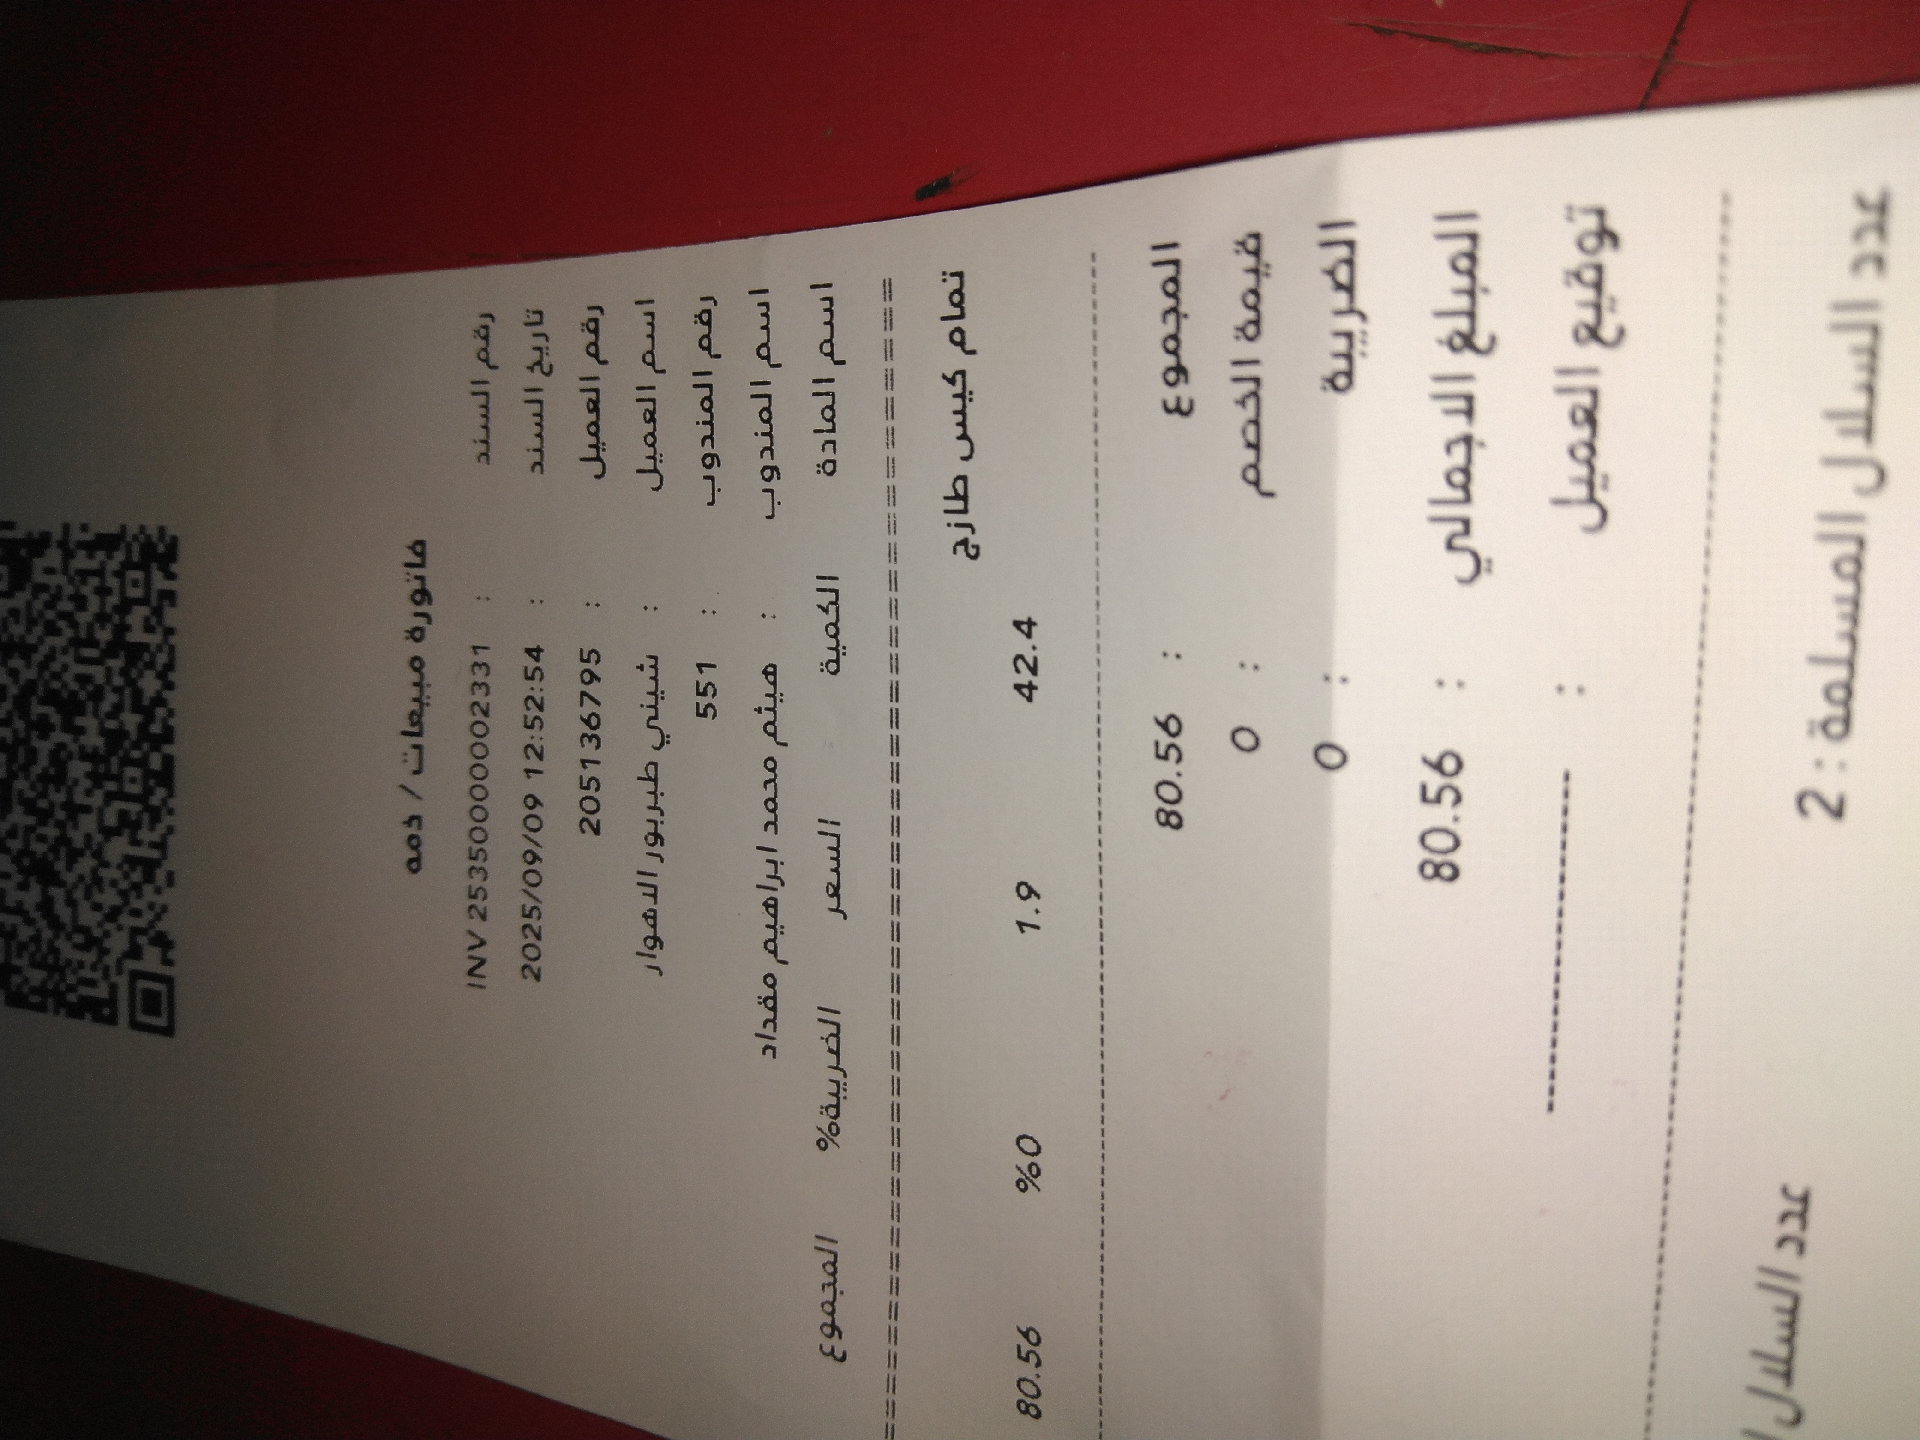 فاتورة مبيعات / ذمه
رقم السند : INV 2535000002331
تاريخ السند : 2025/09/09 12:52:54
رقم العميل : 205136795
اسم العميل : شيني طبربور الاهوار
رقم المندوب : 551
اسم المندوب : هيثم محمد ابراهيم مقداد
اسم المادة الكمية السعر الضريبة% المجموع
تمام كيس طازج
42.4 1.9 %0 80.56
المجموع : 80.56
قيمة الخصم : 0
الضريبة : 0
المبلغ الاجمالي : 80.56
توقيع العميل :
عدد السلال المسلمة : 2
عدد السلال